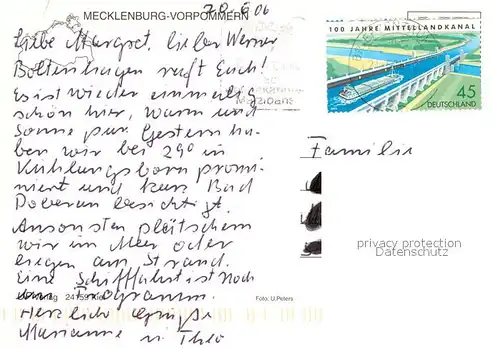 MECKLENBURG-VORPOMMERN
20.6.06
Liebe Margret, lieber Werner
Boltenhagen ruft Euch!
Es ist wieder einmalig
schön hier, warm und
Sonne pur. Gestern ha-
ben wir bei 29° in
Kühlungsborn promi-
niert und kurz Bad
Doberan besichtigt.
Ansonsten plätschern
wir im Meer oder
liegen am Strand.
Eine Schifffahrt ist noch
im Programm.
Herzliche Grüße
Marianne u. Theo
24159 Kiel
Foto: U.Peters
100 JAHRE MITTELLANDKANAL
45
DEUTSCHLAND
Familie
privacy protection
Datenschutz